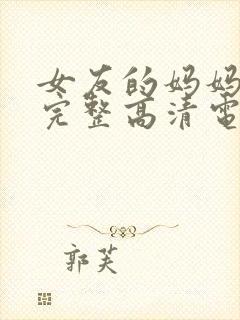 女友的妈妈
完整高清電
郭芙